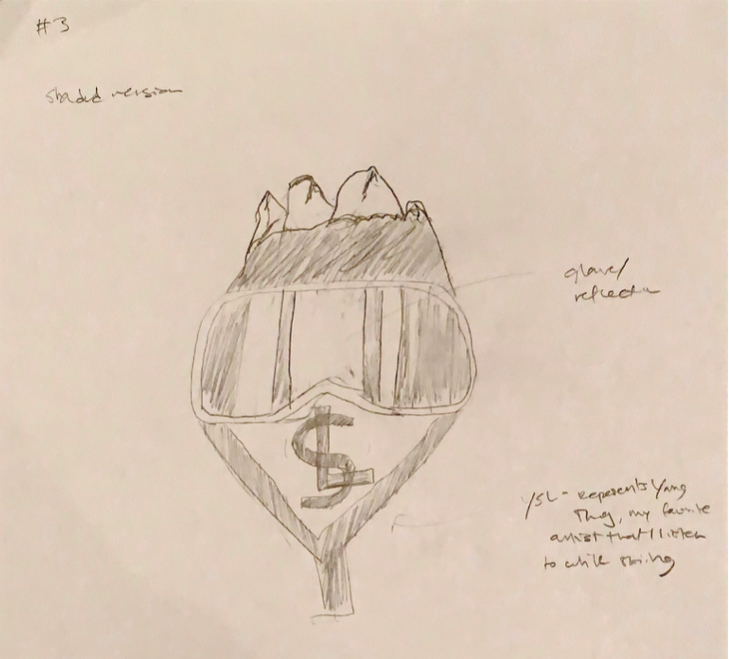 #3
shaded version
glare/
reflection
YSL
YSL - represents Young
Thug, my favorite
artist that I listen
to while skiing